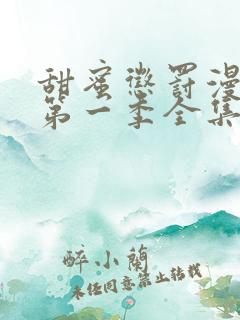 甜蜜懲罰漫
第一季全集
醉小蘭
未经同意禁止转载